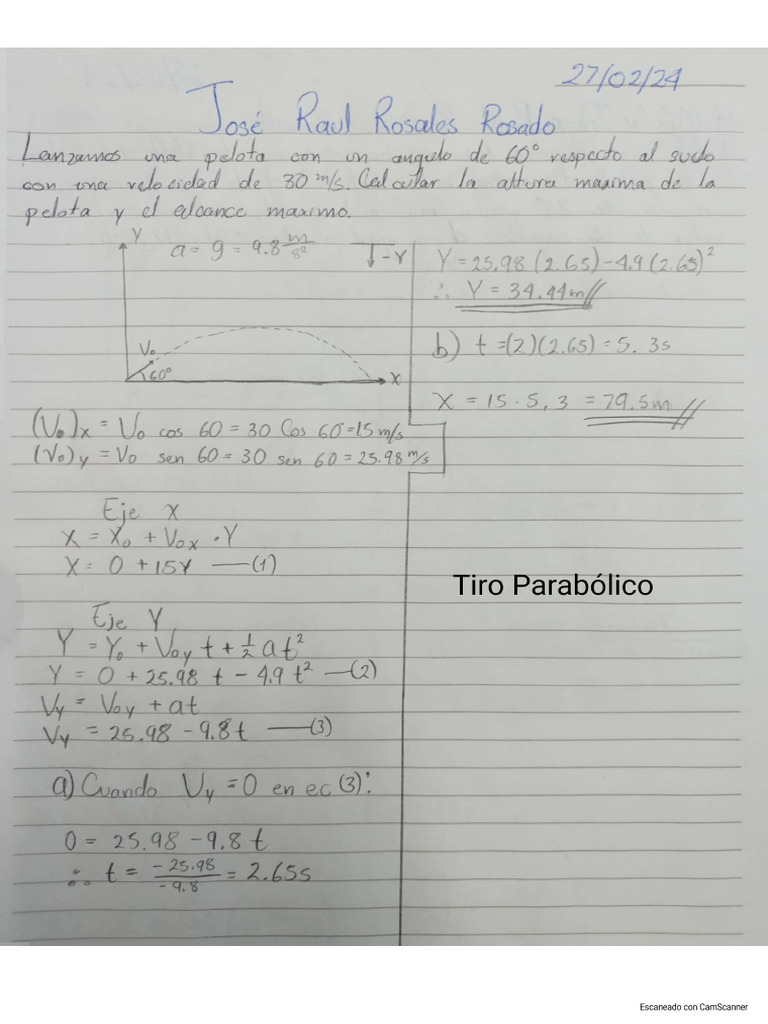 27/02/24
José Raul Rosales Rosado
Lanzamos una pelota con un angulo de 60° respecto al suelo
con una velocidad de 30 m/s. Calcular la altura maxima de la
pelota y el alcance maximo.
Y
a = g = 9.8 m/s²
↓-Y
V₀
60°
X
(V₀)x = V₀ cos 60 = 30 Cos 60°=15 m/s
(V₀)y = V₀ sen 60 = 30 sen 60 = 25.98 m/s
Eje X
X = X₀ + V₀x · Y
X = 0 + 15Y —(1)
Eje Y
Y = Y₀ + V₀y t + ½ at²
Y = 0 + 25.98 t - 4.9 t² —(2)
Vy = V₀y + at
Vy = 25.98 - 9.8t —(3)
a) Cuando Vy = 0 en ec (3):
0 = 25.98 - 9.8 t
∴ t = -25.98/-9.8 = 2.65s
Y = 25.98 (2.65) - 4.9 (2.65)²
∴ Y = 34.44m//
b) t = (2)(2.65) = 5.3s
X = 15 · 5,3 = 79.5m//
Tiro Parabólico
Escaneado con CamScanner